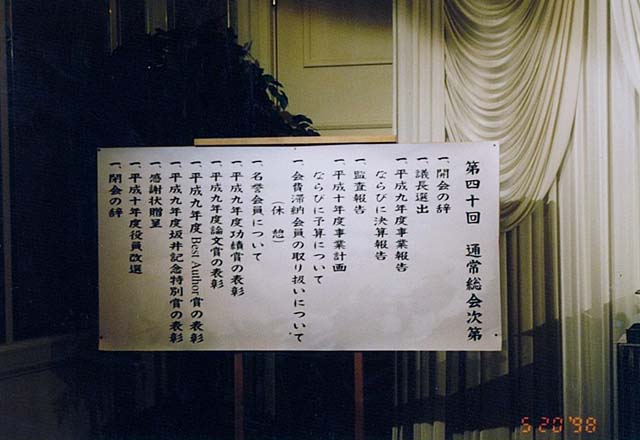 第四十回　通常総会次第
一、開会の辞
一、議長選出
一、平成九年度事業報告
ならびに決算報告
一、監査報告
一、平成十年度事業計画
ならびに予算について
一、会費滞納会員の取り扱いについて
（休　憩）
一、名誉会員について
一、平成九年度功績賞の表彰
一、平成九年度論文賞の表彰
一、平成九年度Best Author賞の表彰
一、平成九年度坂井記念特別賞の表彰
一、感謝状贈呈
一、平成十年度役員改選
一、閉会の辞
5 20 '98